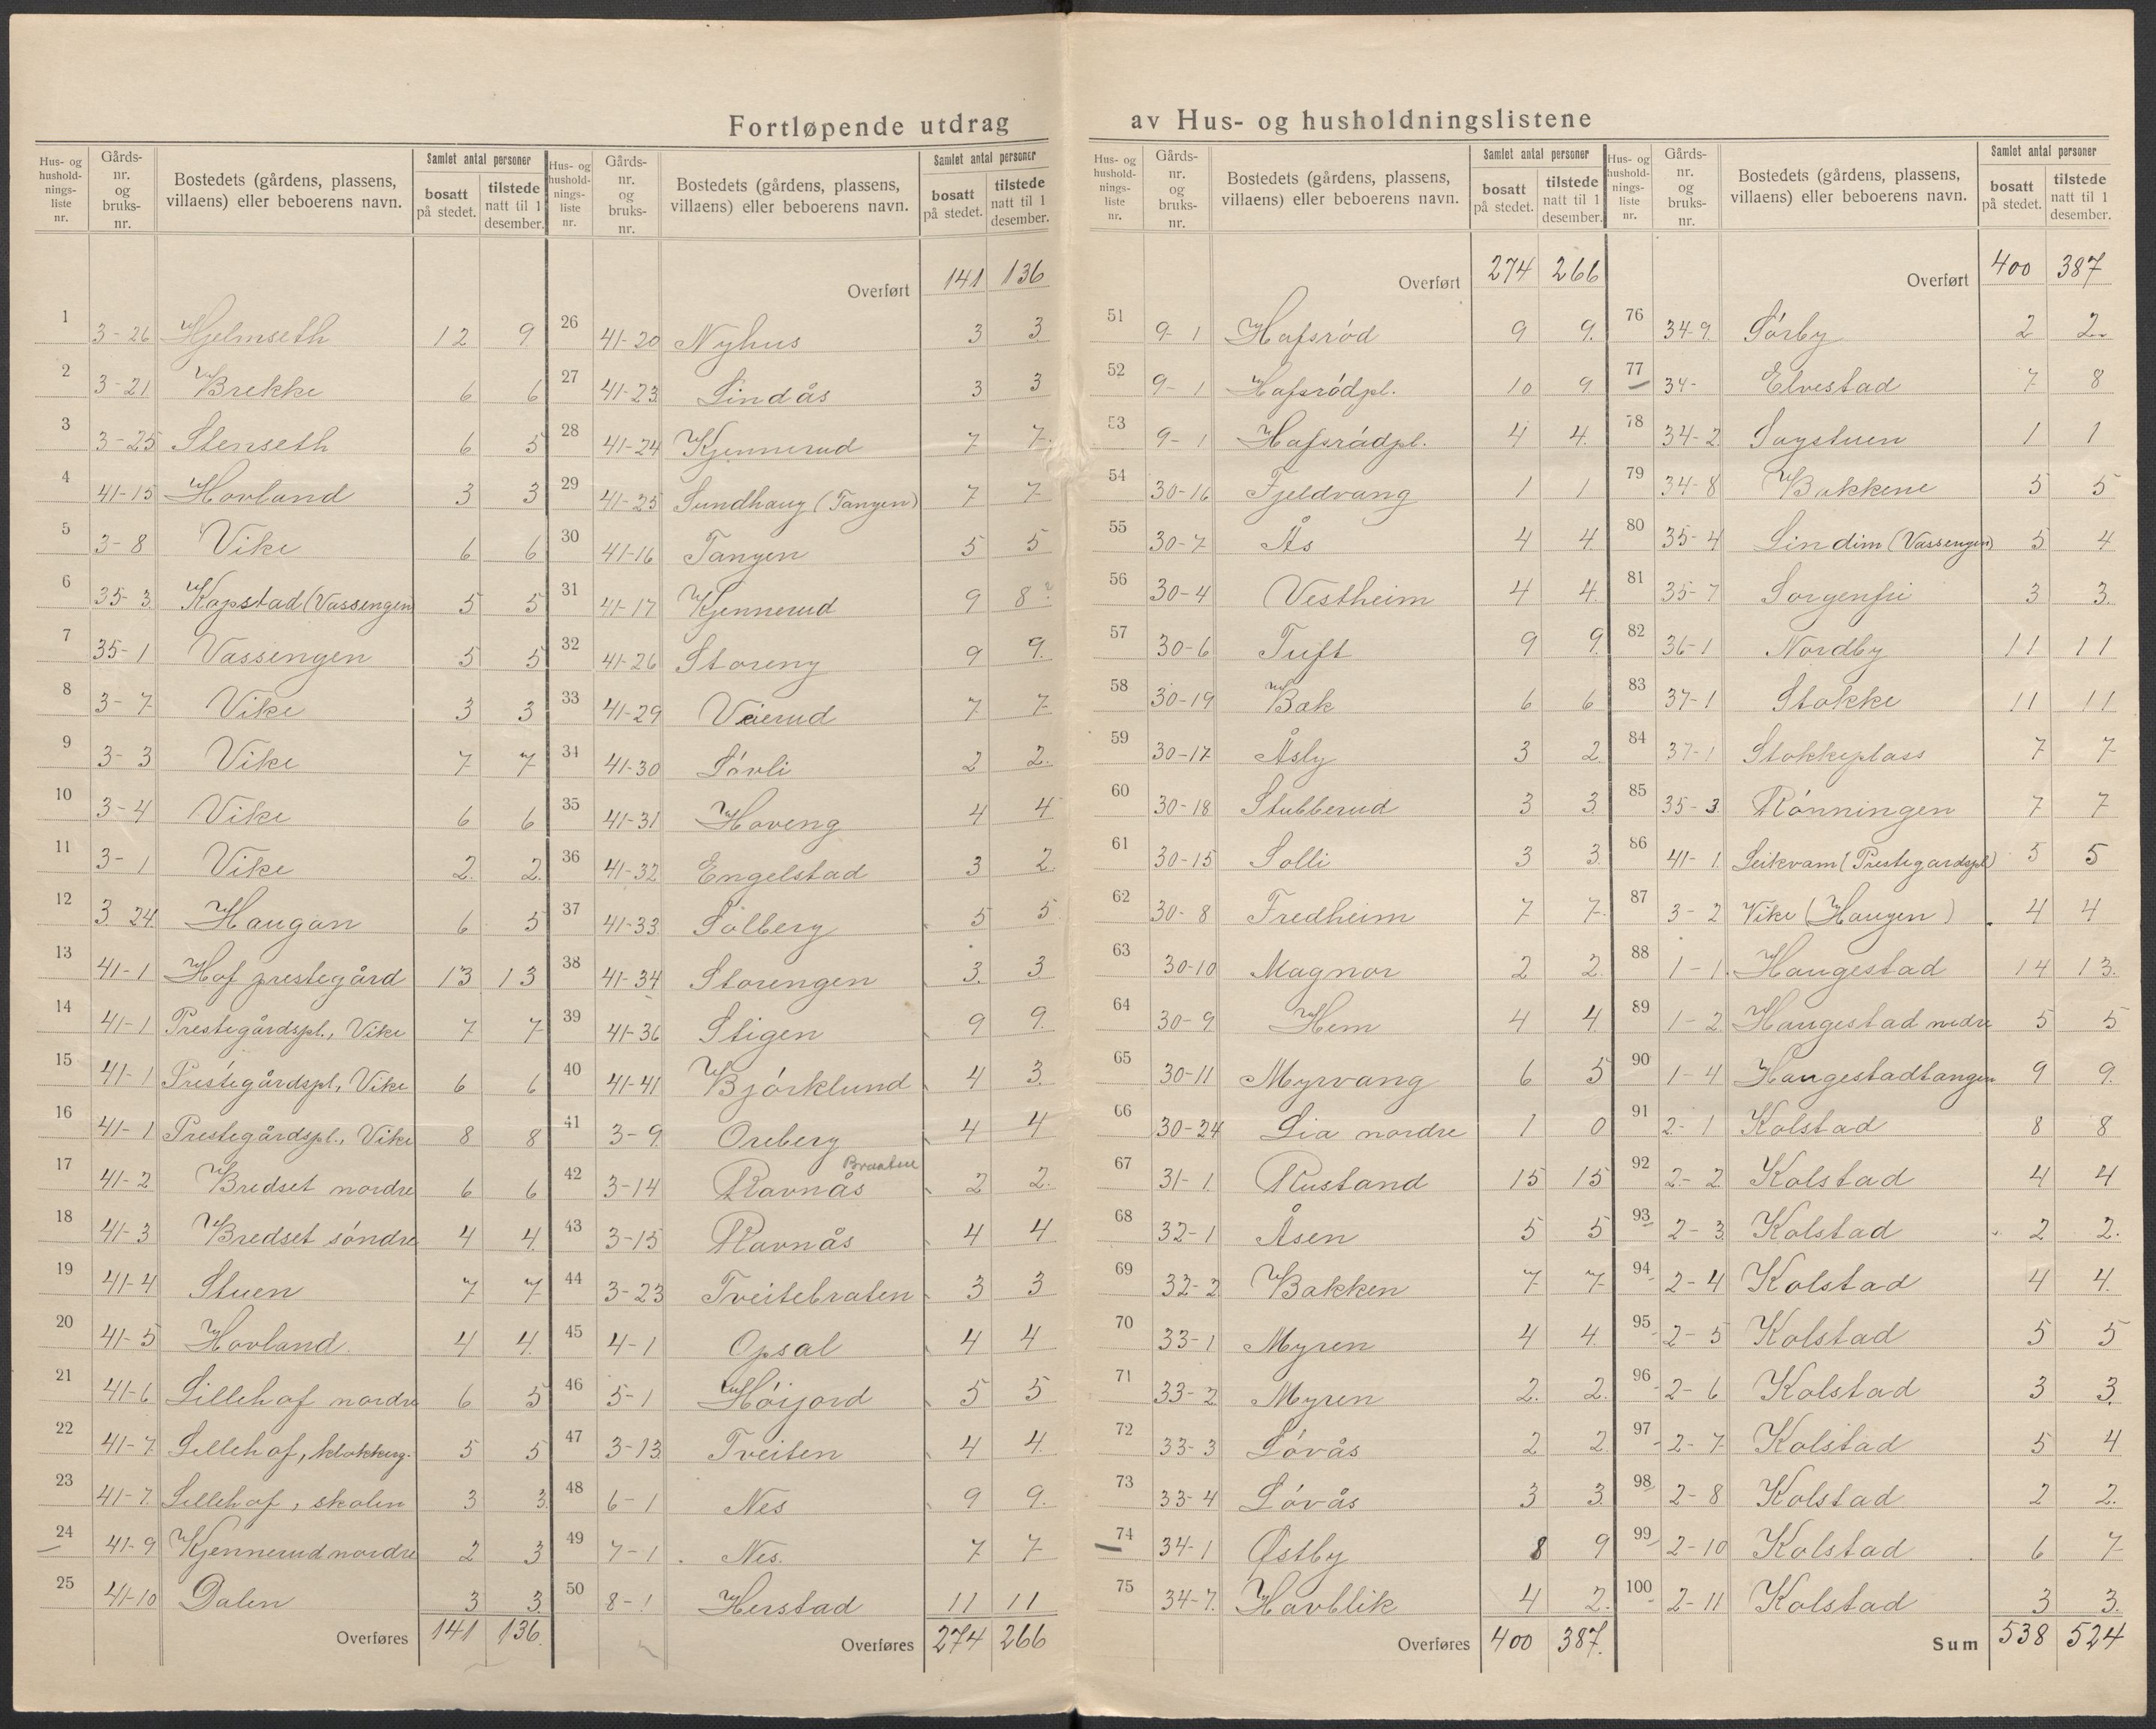 Fortløpende utdrag av Hus- og husholdningslistene
Hus- og husholdnings- liste nr. | Gårds- nr. og bruks- nr. | Bostedets (gårdens, plassens, villaens) eller beboerens navn. | Samlet antal personer | bosatt på stedet. | tilstede natt til 1 desember.
1 3-26 Hjelmseth 12 9
2 3-21 Brekke 6 6
3 3-25 Stenseth 6 5
4 41-15 Hovland 3 3
5 3-8 Vike 6 6
6 35-3 Kopstad (Vassengen 5 5
7 35-1 Vassengen 5 5
8 3-7 Vike 3 3
9 3-3 Vike 7 7
10 3-4 Vike 6 6
11 3-1 Vike 2 2
12 3 24 Haugan 6 5
13 41-1 Hof prestegård 13 13
14 41-1 Prestegårdspl., Vike 7 7
15 41-1 Prestegårdspl., Vike 6 6
16 41-1 Prestegårdspl., Vike 8 8
17 41-2 Bredset nordre 6 6
18 41-3 Bredset söndre 4 4
19 41-4 Stuen 7 7
20 41-5 Hovland 4 4
21 41-6 Lillehof nordre 6 5
22 41-7 Lillehof, klokkerg. 5 5
23 41-7 Lillehof, skolen 3 3
24 41-9 Kjennerud nordre 2 3
25 41-10 Dalen 3 3
Overføres 141 136
Hus- og husholdnings- liste nr. | Gårds- nr. og bruks- nr. | Bostedets (gårdens, plassens, villaens) eller beboerens navn. | Samlet antal personer | bosatt på stedet. | tilstede natt til 1 desember.
Overført 141 136
26 41-20 Nyhus 3 3
27 41-23 Lindås 3 3
28 41-24 Kjennerud 7 7
29 41-25 Sundhaug (Tangen) 7 7
30 41-16 Tangen 5 5
31 41-17 Kjennerud 9 8
32 41-26 Storeng 9 9
33 41-29 Veierud 7 7
34 41-30 Lövli 2 2
35 41-31 Hoveng 4 4
36 41-32 Engelstad 3 2
37 41-33 Solberg 5 5
38 41-34 Storengen 3 3
39 41-36 Stigen 9 9
40 41-41 Björklund 4 3
41 3-9 Oreberg 4 4
Braaten
42 3-14 Ravnås 2 2
43 3-15 Ravnås 4 4
44 3-23 Tveitebraten 3 3
45 4-1 Opsal 4 4
46 5-1 Höijord 5 5
47 3-13 Tveiten 4 4
48 6-1 Nes 9 9
49 7-1 Nes. 7 7
50 8-1 Herstad 11 11
Overføres 274 266
Hus- og husholdnings- liste nr. | Gårds- nr. og bruks- nr. | Bostedets (gårdens, plassens, villaens) eller beboerens navn. | Samlet antal personer | bosatt på stedet. | tilstede natt til 1 desember.
Overført 274 266
51 9-1 Hafsröd 9 9
52 9-1 Hafsrödpl. 10 9
53 9-1 Hafsrödpl. 4 4
54 30-16 Fjeldvang 1 1
55 30-7 Ås 4 4
56 30-4 Vestheim 4 4
57 30-6 Tuft 9 9
58 30-19 Bak 6 6
59 30-17 Åsly 3 2
60 30-18 Stubberud 3 3
61 30-15 Solli 3 3
62 30-8 Fredheim 7 7
63 30-10 Magnor 2 2
64 30-9 Hem 4 4
65 30-11 Myrvang 6 5
66 30-24 Lia nordre 1 0
67 31-1 Rustand 15 15
68 32-1 Åsen 5 5
69 32-2 Bakken 7 7
70 33-1 Myren 4 4
71 33-2 Myren 2 2
72 33-3 Lövås 2 2
73 33-4 Lövås 3 3
74 34-1 Østby 8 9
75 34-7 Havblik 4 2
Overføres 400 387
Hus- og husholdnings- liste nr. | Gårds- nr. og bruks- nr. | Bostedets (gårdens, plassens, villaens) eller beboerens navn. | Samlet antal personer | bosatt på stedet. | tilstede natt til 1 desember.
Overført 400 387
76 34-9 Sörby 2 2
77 34- Elvestad 7 8
78 34-2 Sagstuen 1 1
79 34-8 Bakkene 5 5
80 35-4 Lindim (Vassengen) 5 4
81 35-7 Sorgenfri 3 3
82 36-1 Nordby 11 11
83 37-1 Stokke 11 11
84 37-1 Stokkeplass 7 7
85 35-3 Rönningen 7 7
86 41-1 Leikvam (Prestegardspl) 5 5
87 3-2 Vike (Haugen) 4 4
88 1-1 Haugestad 14 13
89 1-2 Haugestad nedre 5 5
90 1-4 Haugestadtangen 9 9
91 2-1 Kolstad 8 8
92 2-2 Kolstad 4 4
93 2-3 Kolstad 2 2
94 2-4 Kolstad 4 4
95 2-5 Kolstad 5 5
96 2-6 Kolstad 3 3
97 2-7 Kolstad 5 4
98 2-8 Kolstad 2 2
99 2-10 Kolstad 6 7
100 2-11 Kolstad 3 3
Sum 538 524